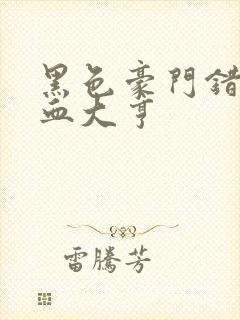 黑色豪門錯
血大亨
雷騰芳